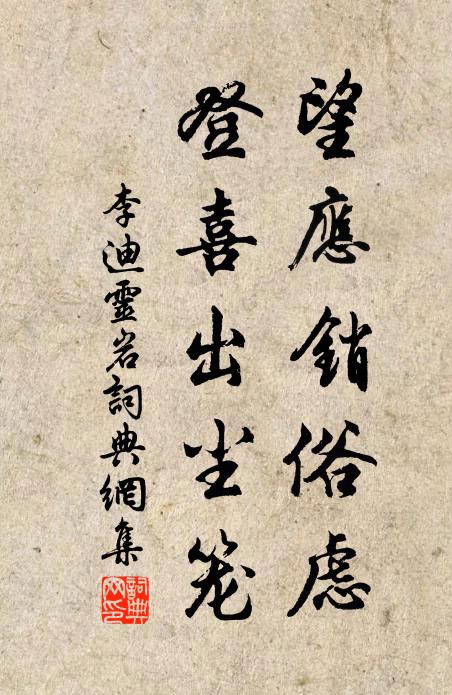 望應銷俗慮
登喜出尘笼
李迪靈岩詞典網集
詞典网印